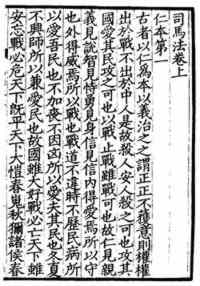 司馬法卷上
仁本第一
古者以仁為本以義治之之謂正正不獲意則權權
出於戰不出於中人是故殺人安人殺之可也攻其
國愛其民攻之可也以戰止戰雖戰可也故仁見親
義見說智見恃勇見身信見信内得愛焉所以守
也外得威焉所以戰也戰道不違時不歷民病所
以愛吾民也不加喪不因凶所以愛夫其民也冬夏
不興師所以兼愛民也故國雖大好戰必亡天下雖
安忘戰必危天下既平天下大愷春蒐秋獮諸侯春